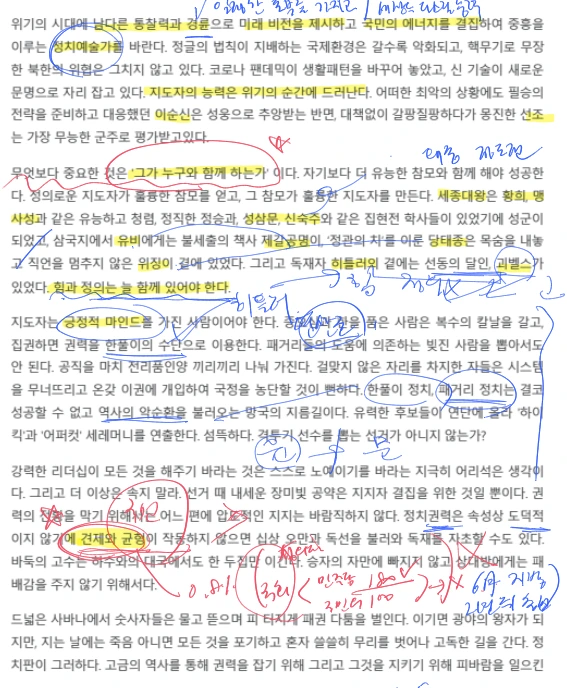 위기의 시대에 남다른 통찰력과 경륜으로 미래 비전을 제시하고 국민의 에너지를 결집하여 중흥을
이루는 정치예술가를 바란다. 정글의 법칙이 지배하는 국제환경은 갈수록 악화되고, 핵무기로 무장
한 북한의 위협은 그치지 않고 있다. 코로나 팬데믹이 생활패턴을 바꾸어 놓았고, 신 기술이 새로운
문명으로 자리 잡고 있다. 지도자의 능력은 위기의 순간에 드러난다. 어떠한 최악의 상황에도 필승의
전략을 준비하고 대응했던 이순신은 성웅으로 추앙받는 반면, 대책없이 갈팡질팡하다가 몽진한 선조
는 가장 무능한 군주로 평가받고있다.
무엇보다 중요한 것은 '그가 누구와 함께 하는가' 이다. 자기보다 더 유능한 참모와 함께 해야 성공한
다. 정의로운 지도자가 훌륭한 참모를 얻고, 그 참모가 훌륭한 지도자를 만든다. 세종대왕은 황희, 맹
사성과 같은 유능하고 청렴, 정직한 정승과, 성삼문, 신숙주와 같은 집현전 학사들이 있었기에 성군이
되었고, 삼국지에서 유비에게는 불세출의 책사 제갈공명이, '정관의 치'를 이룬 당태종은 목숨을 내놓
고 직언을 멈추지 않은 위징이 곁에 있었다. 그리고 독재자 히틀러의 곁에는 선동의 달인, 괴벨스가
있었다. 힘과 정의는 늘 함께 있어야 한다.
히틀러
지도자는 긍정적 마인드를 가진 사람이어야 한다. 품은 사람은 복수의 칼날을 갈고,
집권하면 권력을 한풀이의 수단으로 이용한다. 패거리들의 도움에 의존하는 빚진 사람을 뽑아서도
안 된다. 공직을 마치 전리품인양 끼리끼리 나눠 가진다. 걸맞지 않은 자리를 차지한 자들은 시스템
을 무너뜨리고 온갖 이권에 개입하여 국정을 농단할 것이 뻔하다. 한풀이 정치, 패거리 정치는 결코
성공할 수 없고 역사의 악순환을 불러오는 망국의 지름길이다. 유력한 후보들이 연단에 올라 '하이
킥'과 '어퍼컷' 세레머니를 연출한다. 섬뜩하다. 격투기 선수를 뽑는 선거가 아니지 않는가?
강력한 리더십이 모든 것을 해주기 바라는 것은 스스로 노예이기를 바라는 지극히 어리석은 생각이
다. 그리고 더 이상은 속지 말라. 선거 때 내세운 장미빛 공약은 지지자 결집을 위한 것일 뿐이다. 권
력의 전횡을 막기 위해서는 어느 편에 압도적인 지지는 바람직하지 않다. 정치권력은 속성상 도덕적
이지 않기에 견제와 균형이 작동하지 않으면 십상 오만과 독선을 불러와 독재를 자초할 수도 있다.
바둑의 고수는 하수와의 대국에서도 한 두집만 이긴다. 승자의 자만에 빠지지 않고 상대방에게는 패
배감을 주지 않기 위해서다.
0.8%
180
100
드넓은 사바나에서 숫사자들은 물고 뜯으며 피 터지게 패권 다툼을 벌인다. 이기면 광야의 왕자가 되
지만, 지는 날에는 죽음 아니면 모든 것을 포기하고 혼자 쓸쓸히 무리를 벗어나 고독한 길을 간다. 정
치판이 그러하다. 고금의 역사를 통해 권력을 잡기 위해 그리고 그것을 지키기 위해 피바람을 일으킨